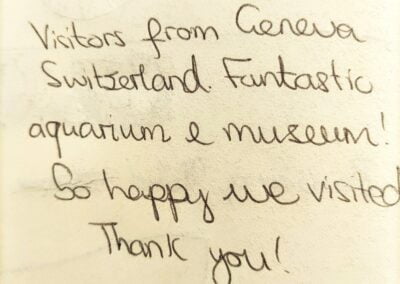 Visitors from Geneva
Switzerland. Fantastic
aquarium e museum!
So happy we visited
Thank you!